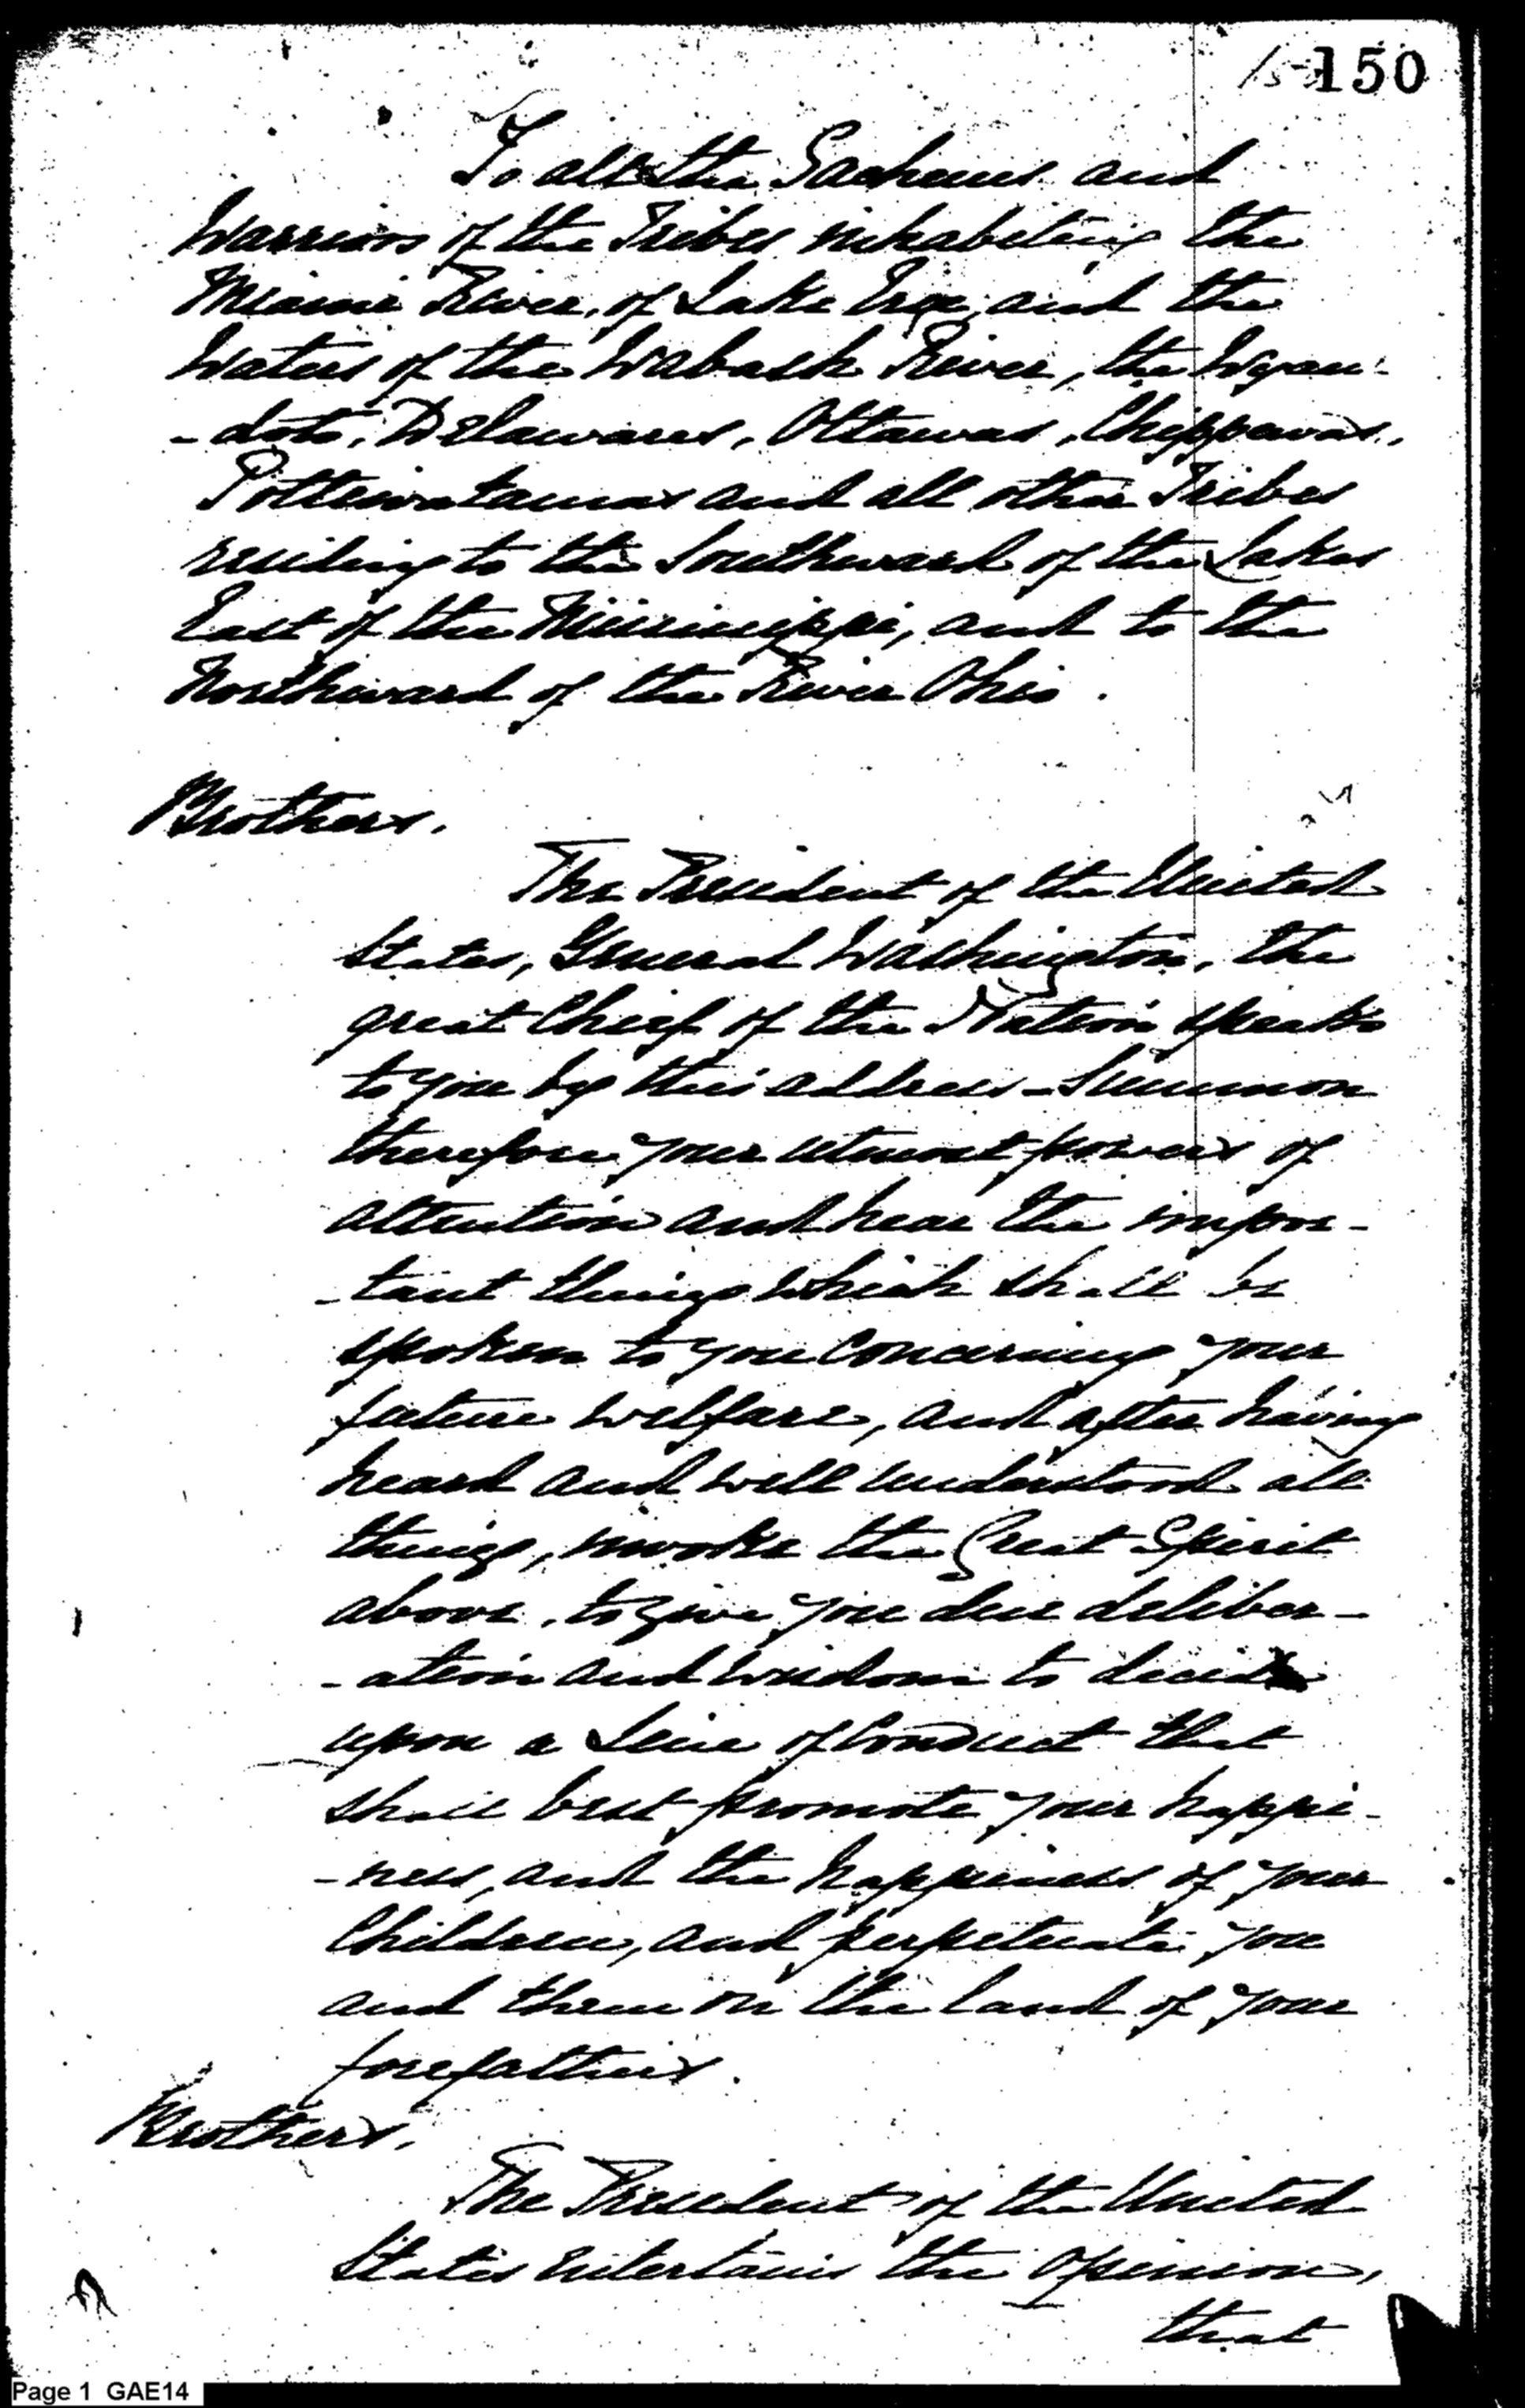 150
To all the Sachems and
Warriors of the Tribes inhabiting the
Miami River, of Lake Erie, and the
Waters of the Wabash River, the Wyan-
-dots, Delawares, Ottawas, Chippewas,
Pottewatamas and all other Tribes
residing to the Southward of the Lakes
East of the Mississippi, and to the
Northward of the River Ohio.
Brothers.
The President of the United
States, General Washington, the
great Chief of the Nation speaks
to you by this address - Summon
therefore your utmost powers of
attention and hear the impor-
-tant things which shall be
spoken to you Concerning your
future welfare, and after having
heard and well understood all
things, invoke the Great Spirit
above, to give you due deliber-
-ation and wisdom to decide
upon a Line of Conduct that
shall best promote your happi-
-ness, and the happiness of your
Children, and perpetuate you
and them on the land of your
forefathers.
Brothers.
The President of the United
States entertains the Opinion,
that
Page 1 GAE14